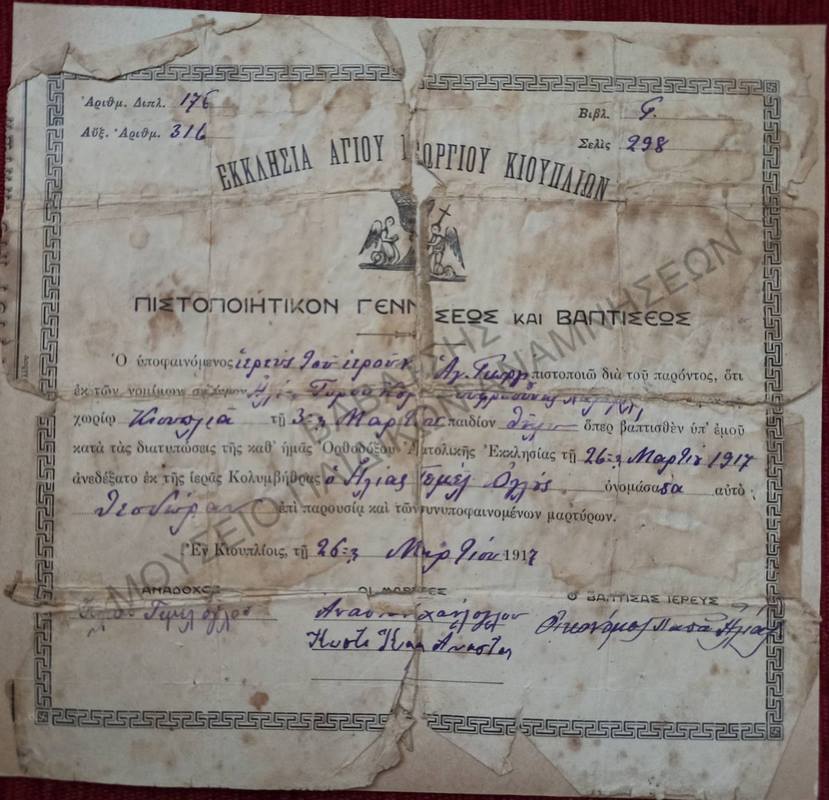 Ἀριθμ. Διπλ. 176
Αὔξ. Ἀριθμ. 316
Βιβλ.
Σελὶς 298
ΕΚΚΛΗΣΙΑ ΑΓΙΟΥ ΓΕΩΡΓΙΟΥ ΚΙΟΥΠΛΙΩΝ
ΠΙΣΤΟΠΟΙΗΤΙΚΟΝ ΓΕΝΝΗΣΕΩΣ ΚΑΙ ΒΑΠΤΙΣΕΩΣ
Ὁ ὑποφαινόμενος ἱερεὺς τοῦ ἱεροῦ Ν Ἁγ. Γεωργ πιστοποιῶ διὰ τοῦ παρόντος, ὅτι
ἐκ τῶν νομίμων
χωρίῳ Κιουπλιὰ τῇ 3ῃ Μαρτίου παιδίον θῆλυ ὅπερ βαπτισθὲν ὑπ' ἐμοῦ
κατὰ τὰς διατυπώσεις τῆς καθ' ἡμᾶς Ὀρθοδόξου Ἀνατολικῆς Ἐκκλησίας τῇ 26=ῃ Μαρτίου 1917
ἀνεδέξατο ἐκ τῆς ἱερᾶς Κολυμβήθρας ὁ Ἠλίας Τεμὲλ Ὀγλοῦς ὀνομάσασα αὐτὸ
Θεοδώραν ἐπὶ παρουσίᾳ καὶ τῶν συνυποφαινομένων μαρτύρων.
Ἐν Κιουπλίοις, τῇ 26=ῃ Μαρτίου 1917
ΑΝΑΔΟΧΕΣ
ΟΙ ΜΑΡΤΥΡΕΣ
Ο ΒΑΠΤΙΣΑΣ ΙΕΡΕΥΣ
Οἰκονόμος Παπᾶ Ἠλίας
Κωστὶ Καρα Αναστας
ΒΑΦΤΙΣΗΣ
ΜΟΥΣΕΙΟ ΠΑΙΔΙΚΩΝ ΑΝΑΜΝΗΣΕΩΝ